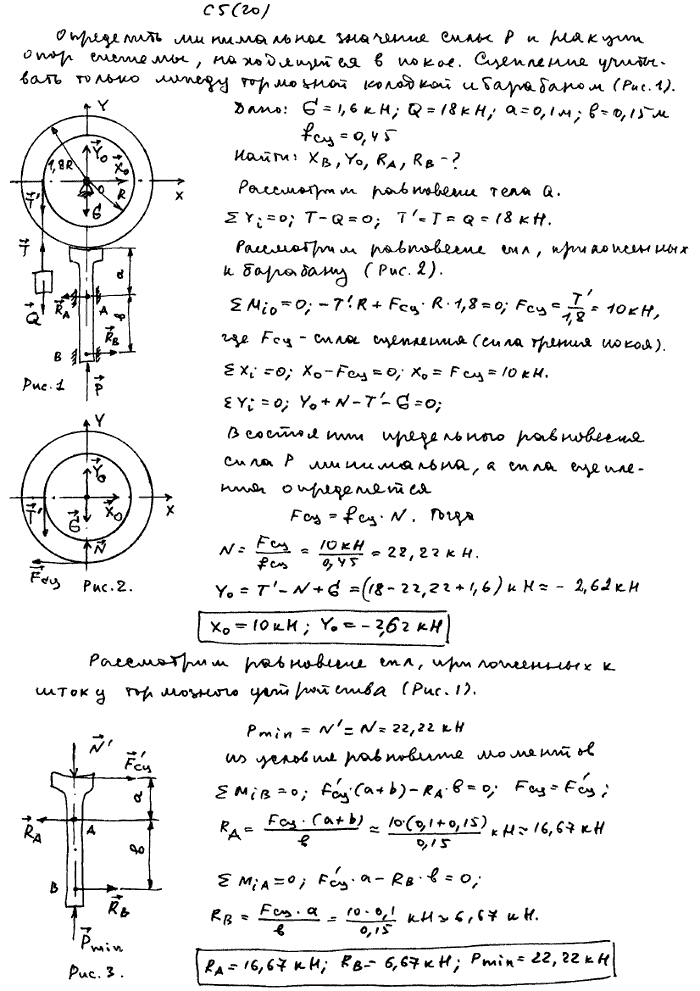 С5(20)
Определить минимальное значение силы P и реакции
опор системы, находящейся в покое. Сцепление учиты-
вать только между тормозной колодкой и барабаном (Рис.1).
Дано: G=1,6 кН; Q=18кН; a=0,1м; b=0,15м
fсц=0,45
Найти: XB, YO, RA, RB-?
Рассмотрим равновесие тела Q.
ΣYi=0; T-Q=0; T'=T=Q=18 кН.
Рассмотрим равновесие сил, приложенных
к барабану (Рис. 2).
ΣMiO=0; -T'·R+Fсц·R·1,8=0; Fсц=T'/1,8=10кН,
где Fсц - сила сцепления (сила трения покоя).
ΣXi=0; XO-Fсц=0; XO=Fсц=10кН.
ΣYi=0; YO+N-T'-G=0;
Y
1,8R
YO
XO
O
R
X
T'
G
T
a
RA
A
Q
b
B
RB
Рис.1
P
В состоянии предельного равновесия
сила P минимальна, а сила сцепле-
ния определяется
Fсц=fсц·N. Тогда
N=Fсц/fсц=10кН/0,45=22,22 кН.
YO=T'-N+G=(18-22,22+1,6)кН=-2,62кН
XO=10кН; YO=-2,62кН
Y
YO
X
T'
G
XO
N
Fсц
Рис.2.
Рассмотрим равновесие сил, приложенных к
штоку тормозного устройства (Рис.1).
Pmin=N'=N=22,22 кН
из условие равновесие моментов
ΣMiB=0; F'сц·(a+b)-RA·b=0; Fсц=F'сц;
RA=Fсц·(a+b)/b=10·(0,1+0,15)/0,15 кН=16,67 кН
ΣMiA=0; F'сц·a-RB·b=0;
RB=Fсц·a/b=10·0,1/0,15 кН=6,67 кН.
RA=16,67 кН; RB=6,67 кН; Pmin=22,22 кН
N'
F'сц
a
RA
A
b
B
RB
Pmin
Рис.3.